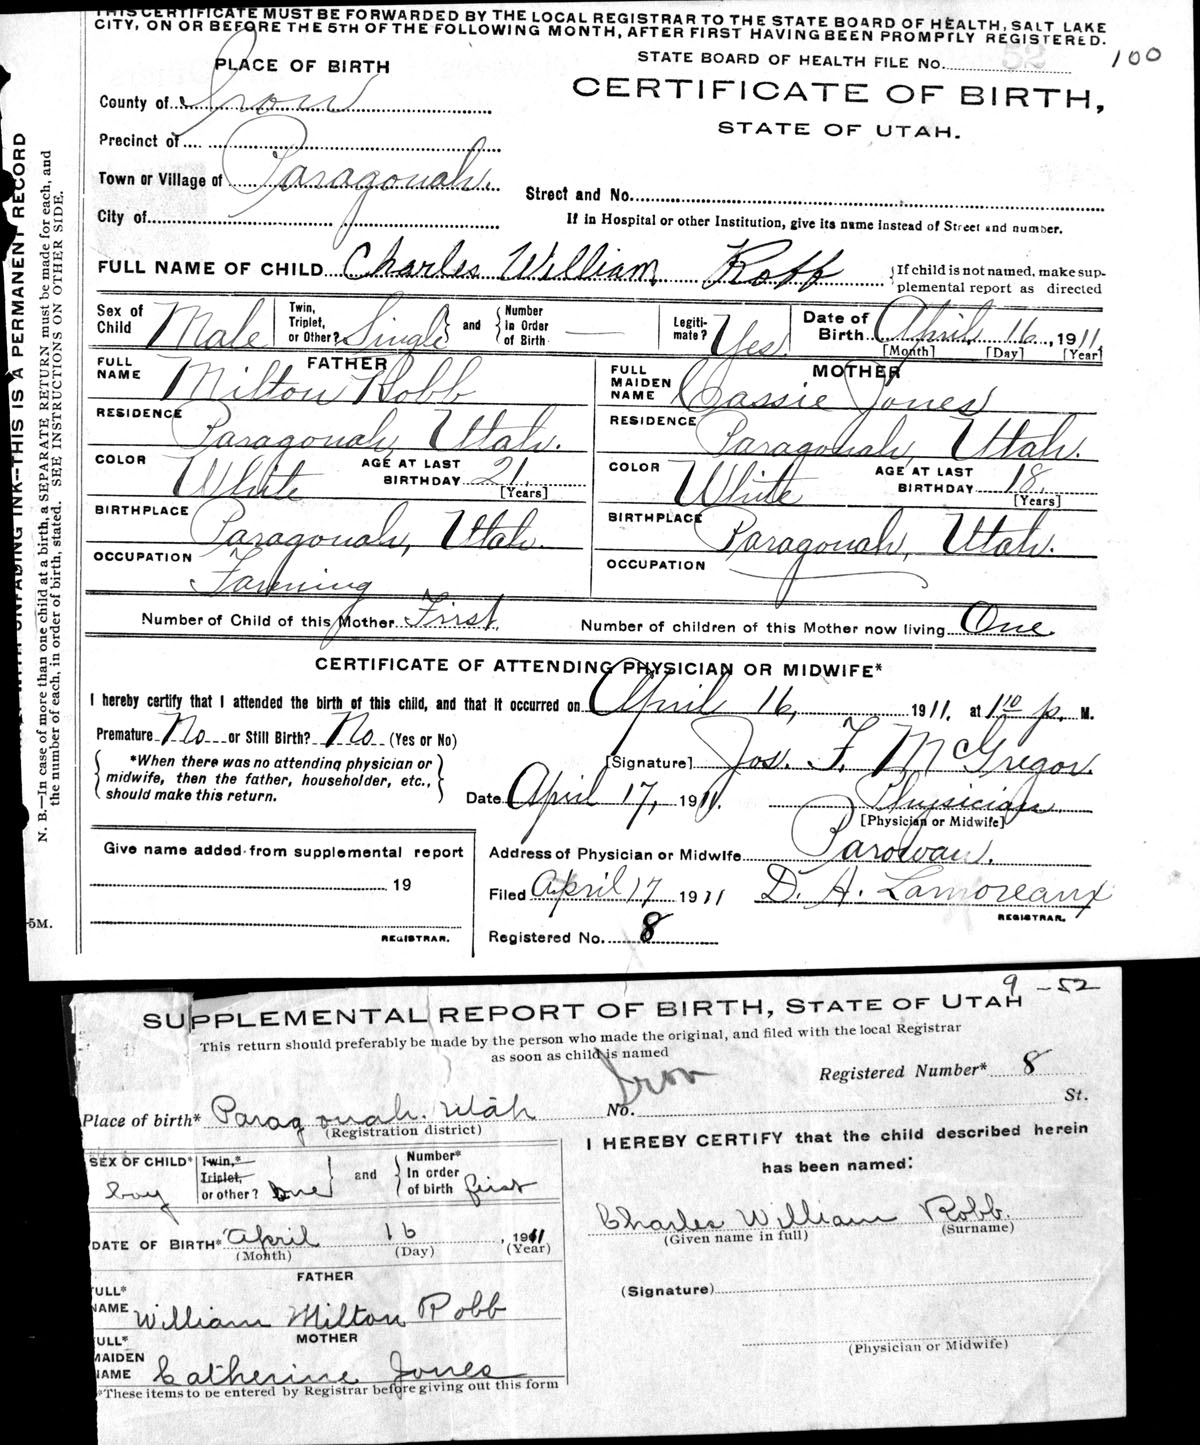 THIS CERTIFICATE MUST BE FORWARDED BY THE LOCAL REGISTRAR TO THE STATE BOARD OF HEALTH, SALT LAKE
CITY, ON OR BEFORE THE 5TH OF THE FOLLOWING MONTH, AFTER FIRST HAVING BEEN PROMPTLY REGISTERED.
STATE BOARD OF HEALTH FILE NO. 52 100
PLACE OF BIRTH
CERTIFICATE OF BIRTH,
STATE OF UTAH.
County of Iron
Precinct of
Town or Village of Paragonah.
Street and No.
City of
If in Hospital or other Institution, give its name instead of Street and number.
FULL NAME OF CHILD Charles William Robb {If child is not named, make sup-
plemental report as directed
Sex of Child Male Twin, Triplet, or Other? Single } and { Number in Order of Birth — Legiti-mate? Yes Date of Birth April 16, 1911
[Month] [Day] [Year]
FATHER MOTHER
FULL NAME Milton Robb FULL MAIDEN NAME Cassie Jones
RESIDENCE Paragonah, Utah. RESIDENCE Paragonah, Utah.
COLOR White AGE AT LAST BIRTHDAY 21. [Years] COLOR White AGE AT LAST BIRTHDAY 18. [Years]
BIRTHPLACE Paragonah, Utah. BIRTHPLACE Paragonah, Utah.
OCCUPATION Farming OCCUPATION
Number of Child of this Mother First. Number of children of this Mother now living One
CERTIFICATE OF ATTENDING PHYSICIAN OR MIDWIFE*
I hereby certify that I attended the birth of this child, and that it occurred on April 16, 1911. at 1 10 p. M.
Premature No or Still Birth? No (Yes or No)
{ *When there was no attending physician or
midwife, then the father, householder, etc.,
should make this return. }
[Signature] Jos. F. McGregor.
Date April 17, 1911. Physician
[Physician or Midwife]
Address of Physician or Midwife Parowan.
Give name added from supplemental report
19
REGISTRAR.
Filed April 17 1911 D. H. Lamoreaux
REGISTRAR.
Registered No. 8
THIS IS A PERMANENT RECORD
N. B.—In case of more than one child at a birth, a SEPARATE RETURN must be made for each, and
the number of each, in order of birth, stated. SEE INSTRUCTIONS ON OTHER SIDE.
5M.
9-52
SUPPLEMENTAL REPORT OF BIRTH, STATE OF UTAH
This return should preferably be made by the person who made the original, and filed with the local Registrar
as soon as child is named
Iron
Registered Number* 8
Place of birth* Paragonah. Utah No. St.
(Registration district)
I HEREBY CERTIFY that the child described herein
has been named:
SEX OF CHILD* boy Twin,* Triplet, or other? One } and { Number* In order of birth first
Charles William Robb.
(Given name in full) (Surname)
DATE OF BIRTH* April 16, 1911
(Month) (Day) (Year)
FATHER
(Signature)
ULL* NAME William Milton Robb
MOTHER
(Physician or Midwife)
ULL* MAIDEN NAME Catherine Jones
*These items to be entered by Registrar before giving out this form